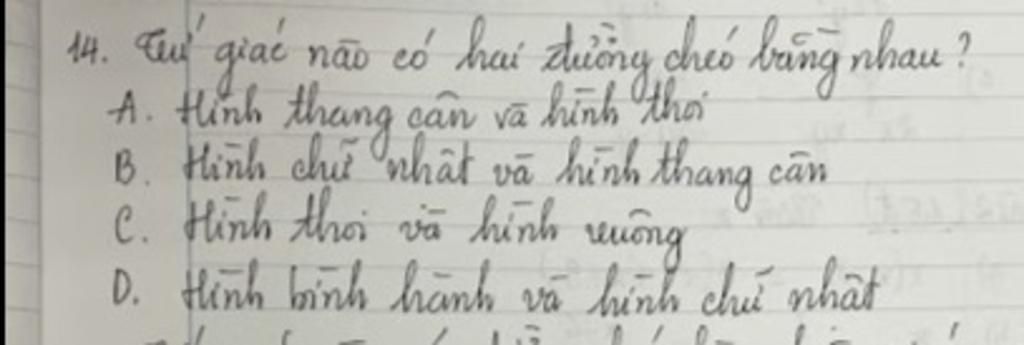 14. Tứ giác nào có hai đường chéo bằng nhau?
A. Hình thang cân và hình thoi
B. Hình chữ nhật và hình thang cân
C. Hình thoi và hình vuông
D. Hình bình hành và hình chữ nhật